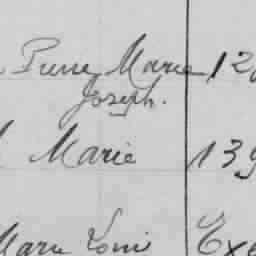 Pierre Marie 12
Joseph.
Marie 139
Marie Louis Exe